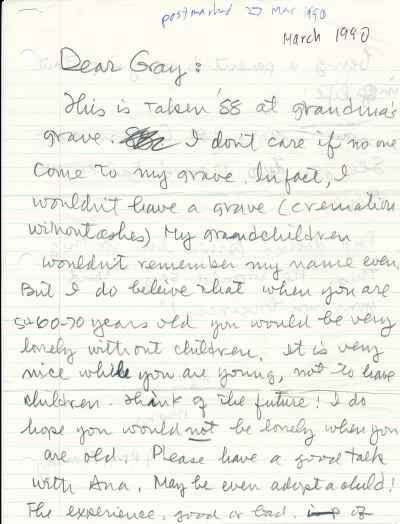 postmarked 27 Mar 1990
March 1990
Dear Gray:
This is taken '88 at grandma's
grave. I don't care if no one
come to my grave. In fact, I
wouldn't have a grave (cremation
without ashes) My grandchildren
wouldn't remember my name even.
But I do beleive that when you are
50-60-70 years old you would be very
lonely without children. It is very
nice while you are young, not to have
children. Think of the future! I do
hope you would not be lonely when you
are old. Please have a good talk
with Ana. May be even adopt a child!
The experience, good or bad. of